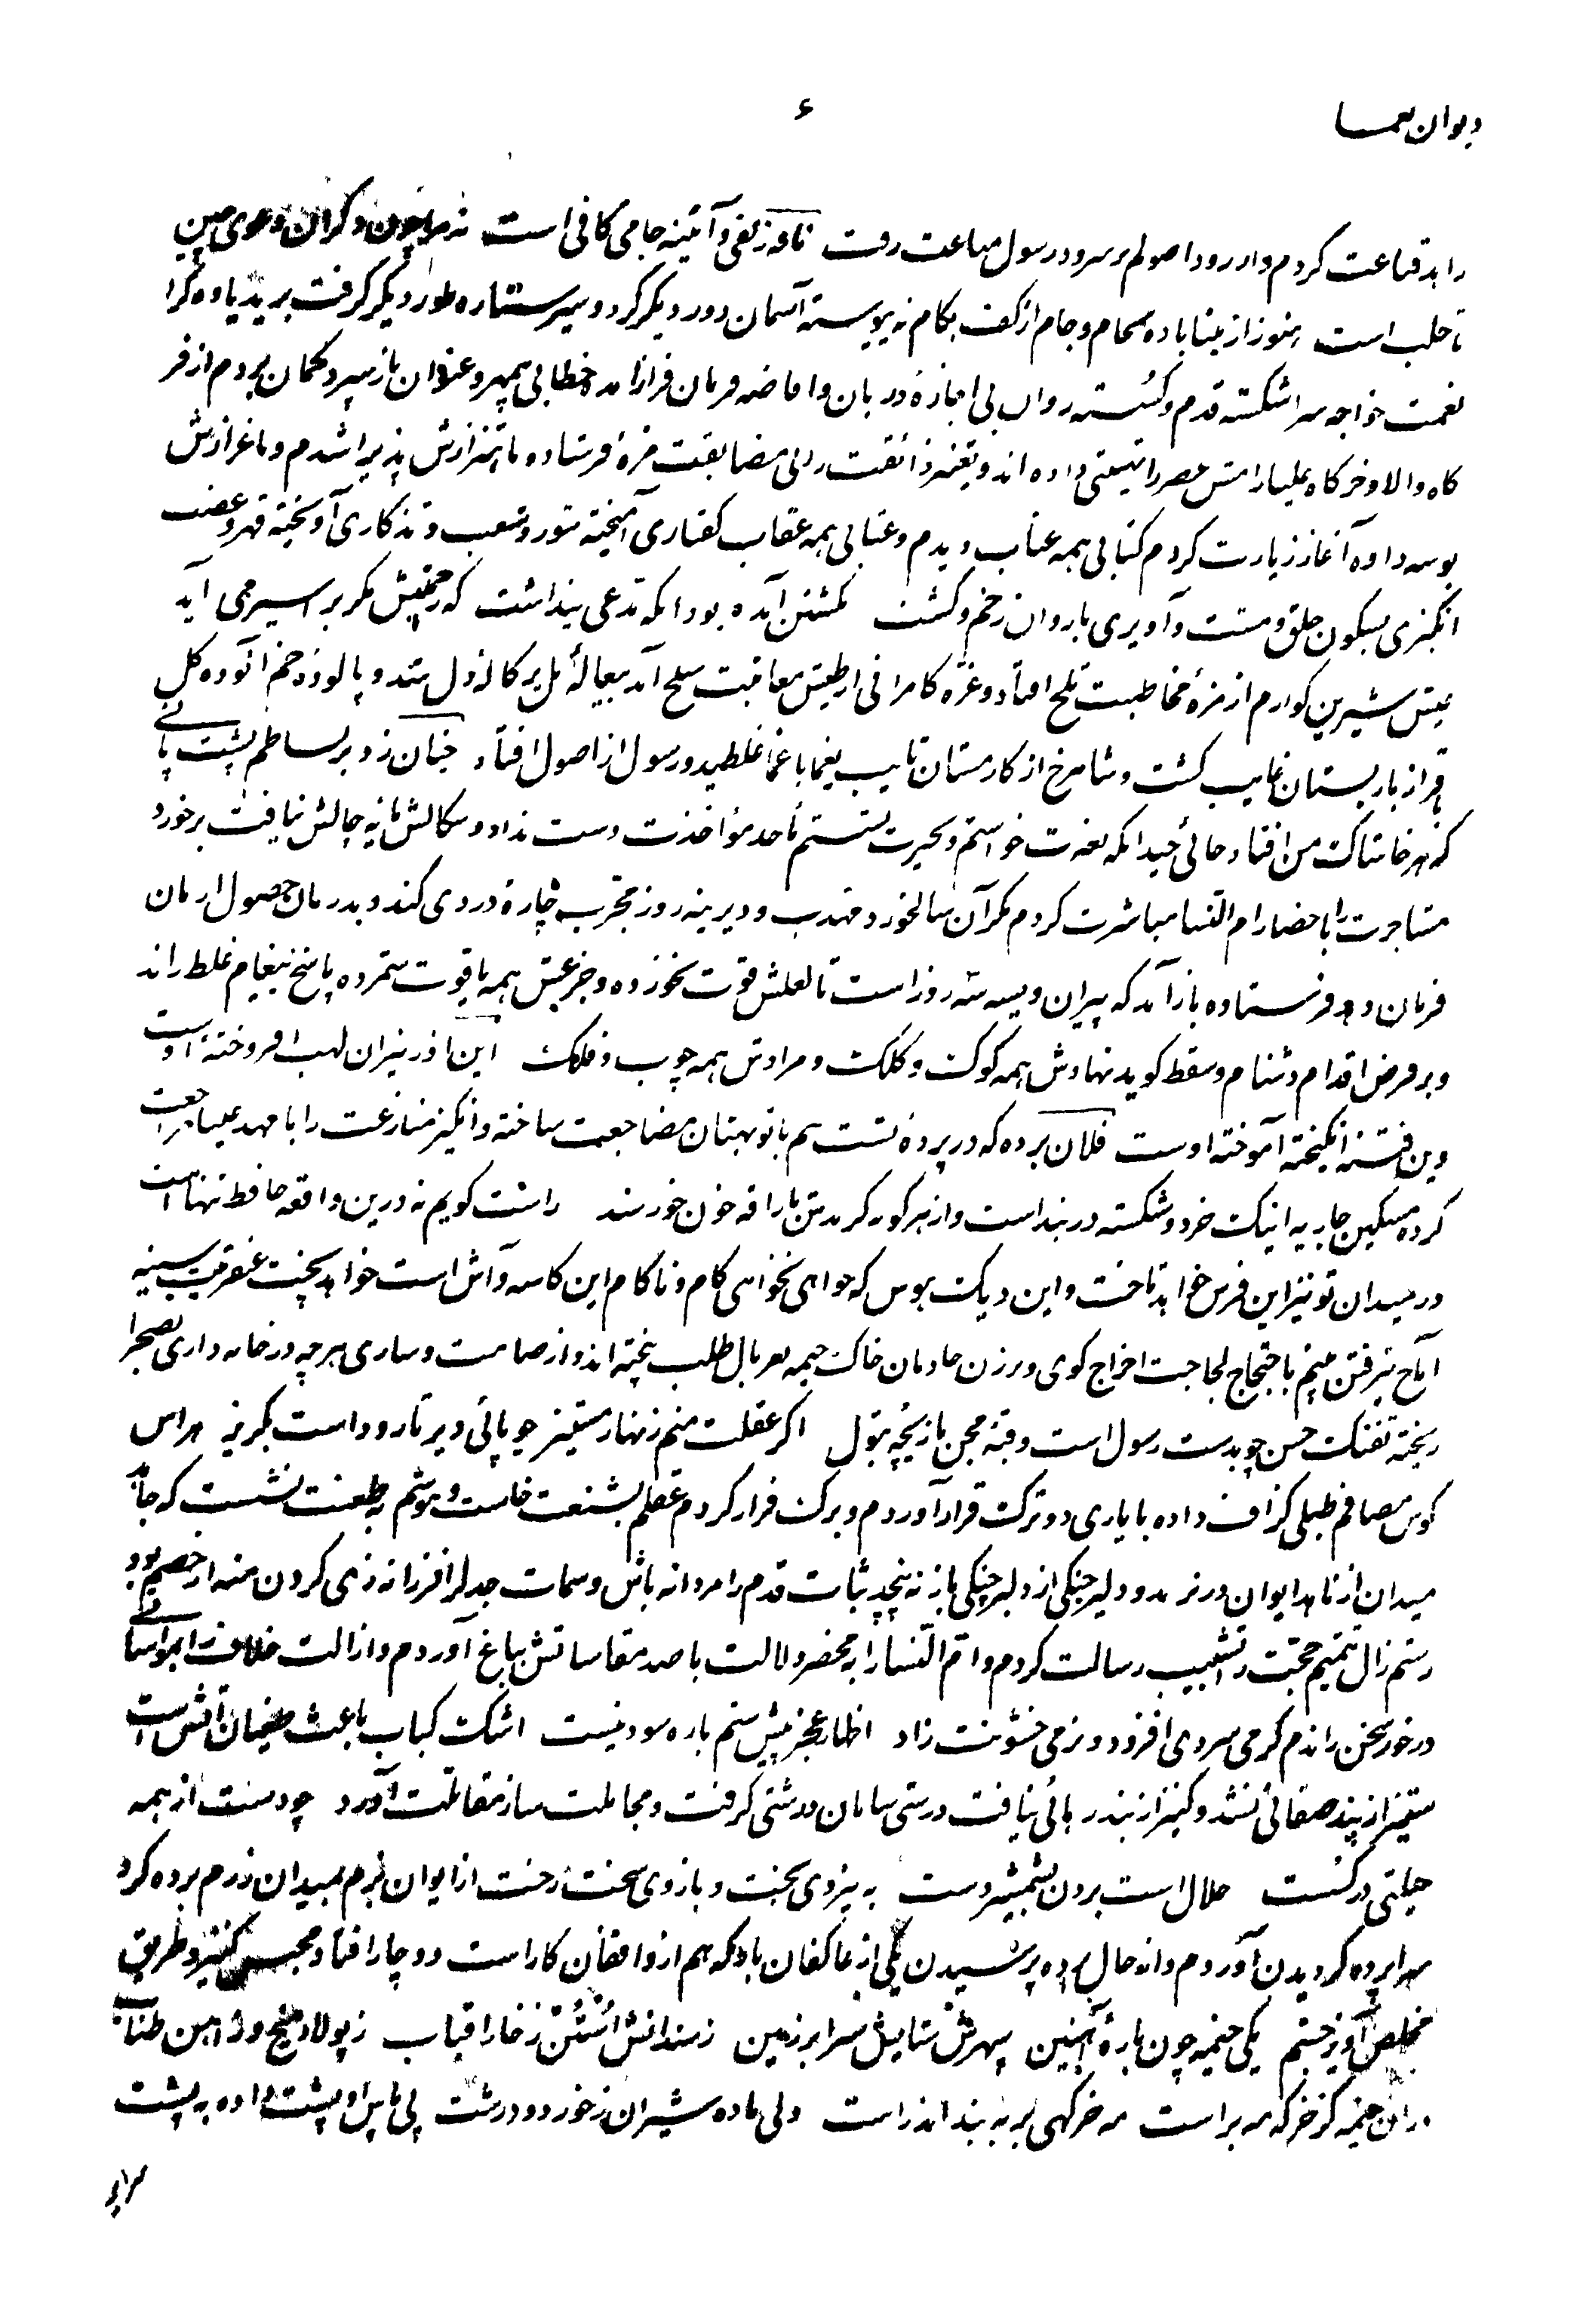 دیوان یغما
۶
را بدقناعت کردم و از رود اصولم بر سرود رسول مباعت رفت نافه زلفی و آئینه جامی کافی است نه مرا چون دگران دعوی چین
تا حلب است هنوز از مینا باده بجام و جام از کف بکام نه پیوسته آسمان دور دیگر کرد و سیر ستاره طور دیگر گرفت برید یاوه گرا
نعمت خواجه سرا شکسته قدم و گسسته روان بی اجازهٔ دربان و افاضه فرمان فراز آمد خطابی بمهر و عنوان باز سپرد گمان بردم از فر
کاه والا و خرگاه علیا رامش عصر را نیستی داده اند و تغیر ذائقت را بی مضایقت مزهٔ فرستاده با هتزازش پذیرا شدم و باغرازش
بوسه داده آغاز زیارت کردم کتابی همه عتاب دیدم و عتابی همه عقاب گفتاری آمیخته شور و شعب و تذکاری آویخته قهر و غضب
انگیزی میگون حلق و مشت و آویزی با روان زخم و کشت بکشتن آمده بود آنکه مدعی پنداشت که رحمتش مگر بر اسیر می آید
عیش شیرین گوارم از مزهٔ مخاطبت تلخ افتاد و غرّه کامرانی از طیش معاقبت سلح آمد پیالهٔ مل پرکاله دل شد و پالوده خم آلوده گل
هزار باربستان غایب گشت و شاهرخ از کار مستان تایب یغما باغما غلطید و رسول از اصول افتاد چنان زد بر بساطم پشت پائی
که هر خاشاک من افتاد جائی چندانکه بغیرت خواستم و بحیرت نشستم مأخذ مؤاخذت دست نداد و سکالش مایه چالش نیافت برخورد
مشاجرت را باحضار ام النسا مباشرت کردم مگر آن سالخورد مهذب و دیرینه روز مجرب چارهٔ دردی کند و بدرمان حصول ارمان
فرمان دهد فرستاده باز آمد که پیران ویسه سه روز است تا لعلش قوت نخورده و جزعش همه یاقوت شمرده پاسخ پیغام غلط راند
و بر فرض اقدام دشنام و سقط گوید نهادش همه کوک و کلک و مرادش همه چوب و فلک این آذر نیران لهب افروختهٔ اوست
وین فتنه انگیخته آموخته اوست فلان برده که در پرده تست هم بانو بهتان مضاجعت ساخته و انگیز منازعت را با مهد علیا مراجعت
کرده مسکین جاریه اینک خرد و شکسته در بند است و از هر گونه گزیدش باراقه خون خورسند راست گویم نه درین واقعه حافظ تنها است
در میدان تو نیز این فرس خواهد تاخت و این دیک هوس که خواهی نخواهی کام و ناکام این کاسه و آش است خواهد پخت عنقریب سینه
آماج تیر فتن مبینم باحتجاج لجاجت اخراج کوی و برزن خادمان خاکت خیمه بغربال طلب بیخته اند و از صامت و ساری هرچه در خانه داری بصحرا
ریخته تفنگ حسن چوبدست رسول است و فتنه مجن بازیچه بتول اگر عقلت منم زنهار مستیز چو پائی دیر تا رود است بگریز هراس
کوس مصافم طبلی گزاف داده با یاری دو ترک قرار آوردم و برگ فرار کردم عقلم بشنعت خاست و هوشم به طعنت نشست که جاهد
میدان از ناهد ایوان در نرمد و دلیر جنگی از دلبر چنگی باز نه پیچد ثبات قدم را مردانه باش و سمات جدل را فرزانه زهی کردن منه ار خصم بود
رستم زال تتمیم حجت را تشبیب رسالت کردم و ام النسا را به محضر دلالت با صد مقاساتش بباغ آوردم و از الت خلاف را بمواسائی
درخور سخن راندم گرمی سردی افزود و نرمی خشونت زاد اظهار عجز پیش ستم باره سود نیست اشک کباب باعث طغیان آتش است
ستیز از پند صفائی نشد و کنیز از بند رهائی نیافت درستی سامان درشتی گرفت و مجاملت ساز مقاتلت آورد چو دست از همه
حیلتی درگسست حلال است بردن بشمشیر دست به نیروی بخت و بازوی سخت رخت از ایوان بزم بمیدان رزم برده گرد
سراپرده گردیدن آوردم و از حال برده پرسیدن یکی از عاکفان باد که هم از واقفان کار است دوچار افتاد محبس کنیز و طریق
مخلص آویز جستم یکی خیمه چون بارهٔ آهنین سپهرش ستایش سرا بر زمین ز سندانش اُستُن ز خارا قباب ز پولاد میخ و ز آهن طناب
در آن خیمه کز خرگه مه براست مه خرگهی پر به بند اندر است ولی ماده شیران ز خورد و درشت پی پاس او پشت داده به پشت